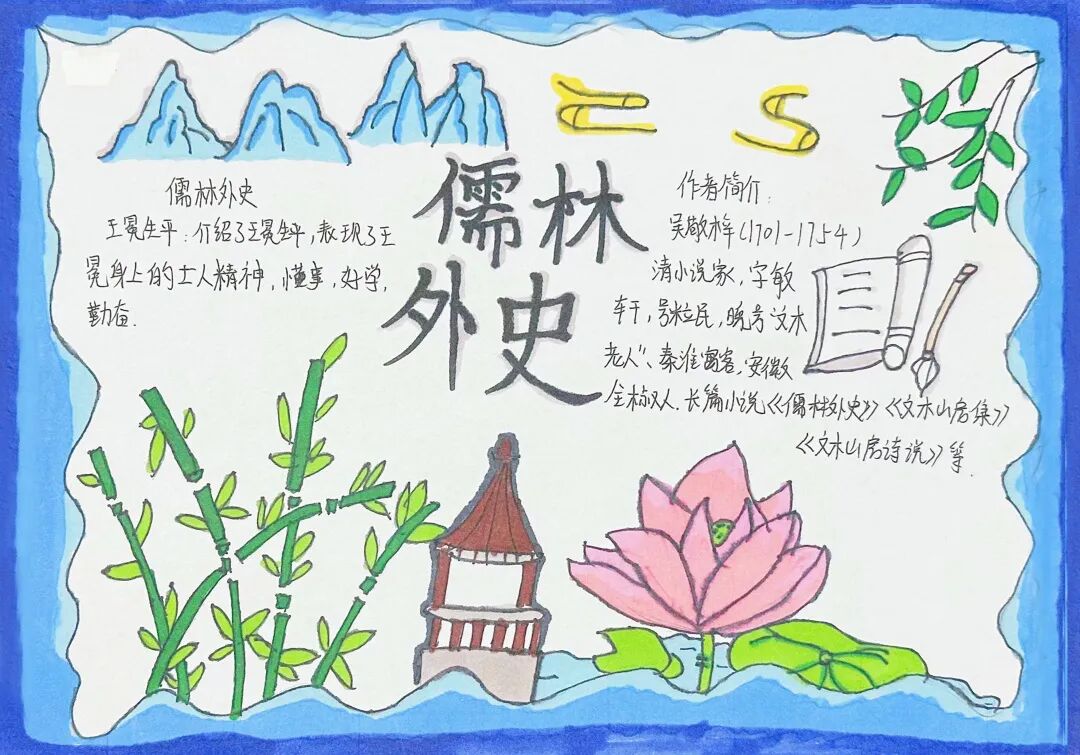 儒林外史
儒林外史
王冕生平：介绍了王冕生平，表现了王
冕身上的士人精神，懂事，好学，
勤奋.
作者简介:
吴敬梓(1701-1754)
清小说家，字敏
轩，号粒民，晚号“文木
老人”、秦淮寓客，安徽
全椒人.长篇小说《儒林外史》《文木山房集》
《文木山房诗说》等.